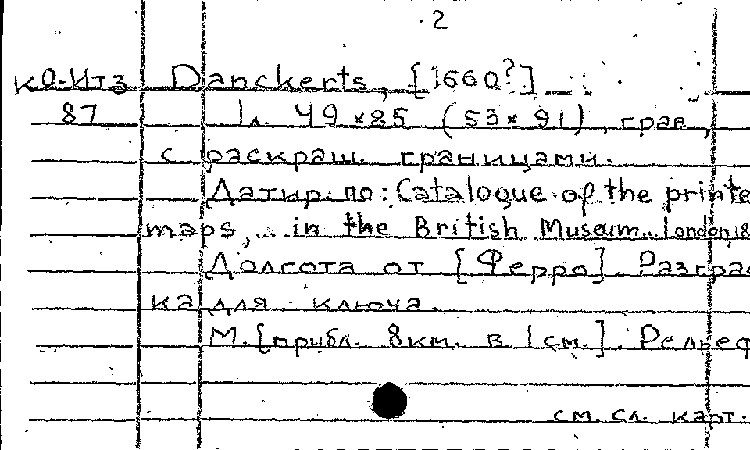 2
КО-Итз Danckerts, [1660?]
87 1 л. 49×85 (53×91), грав,
с раскраш. границами.
Датир. по: Catalogue of the printe
maps, in the British Museum. London, 18
Долгота от [Ферро]. Разграф
ка для ключа.
М. [прибл. 8км. в 1 см.]. Рельеф
см. сл. карт.